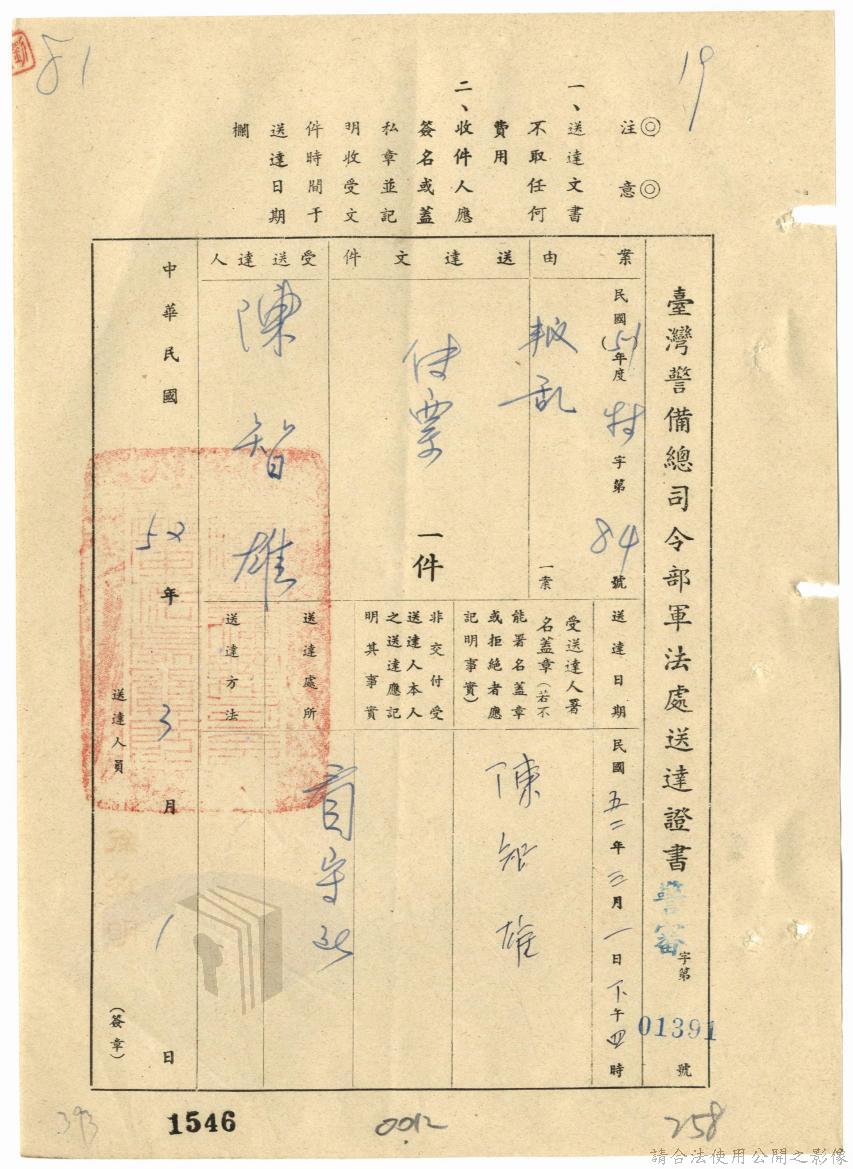 81
19
◎注意◎
一、送達文書
不取任何
費用
二、收件人應
簽名或蓋
私章並記
明收受文
件時間于
送達日期
欄
臺灣警備總司令部軍法處送達證書 警審字第01391號
案由
民國(51)年度特字第84號
叛乱
一案
送達文件
傳票
一件
受送達人
陳智雄
送達日期
民國五二年三月一日下午四時
受送達人署
名蓋章(若不
能署名蓋章
或拒絕者應
記明事實)
陳智雄
非交付受
送達人本人
之送達應記
明其事實
送達處所
看守所
送達方法
中華民國52年3月1日
送達人員
(簽章)
393
1546
0012
258
請合法使用公開之影像